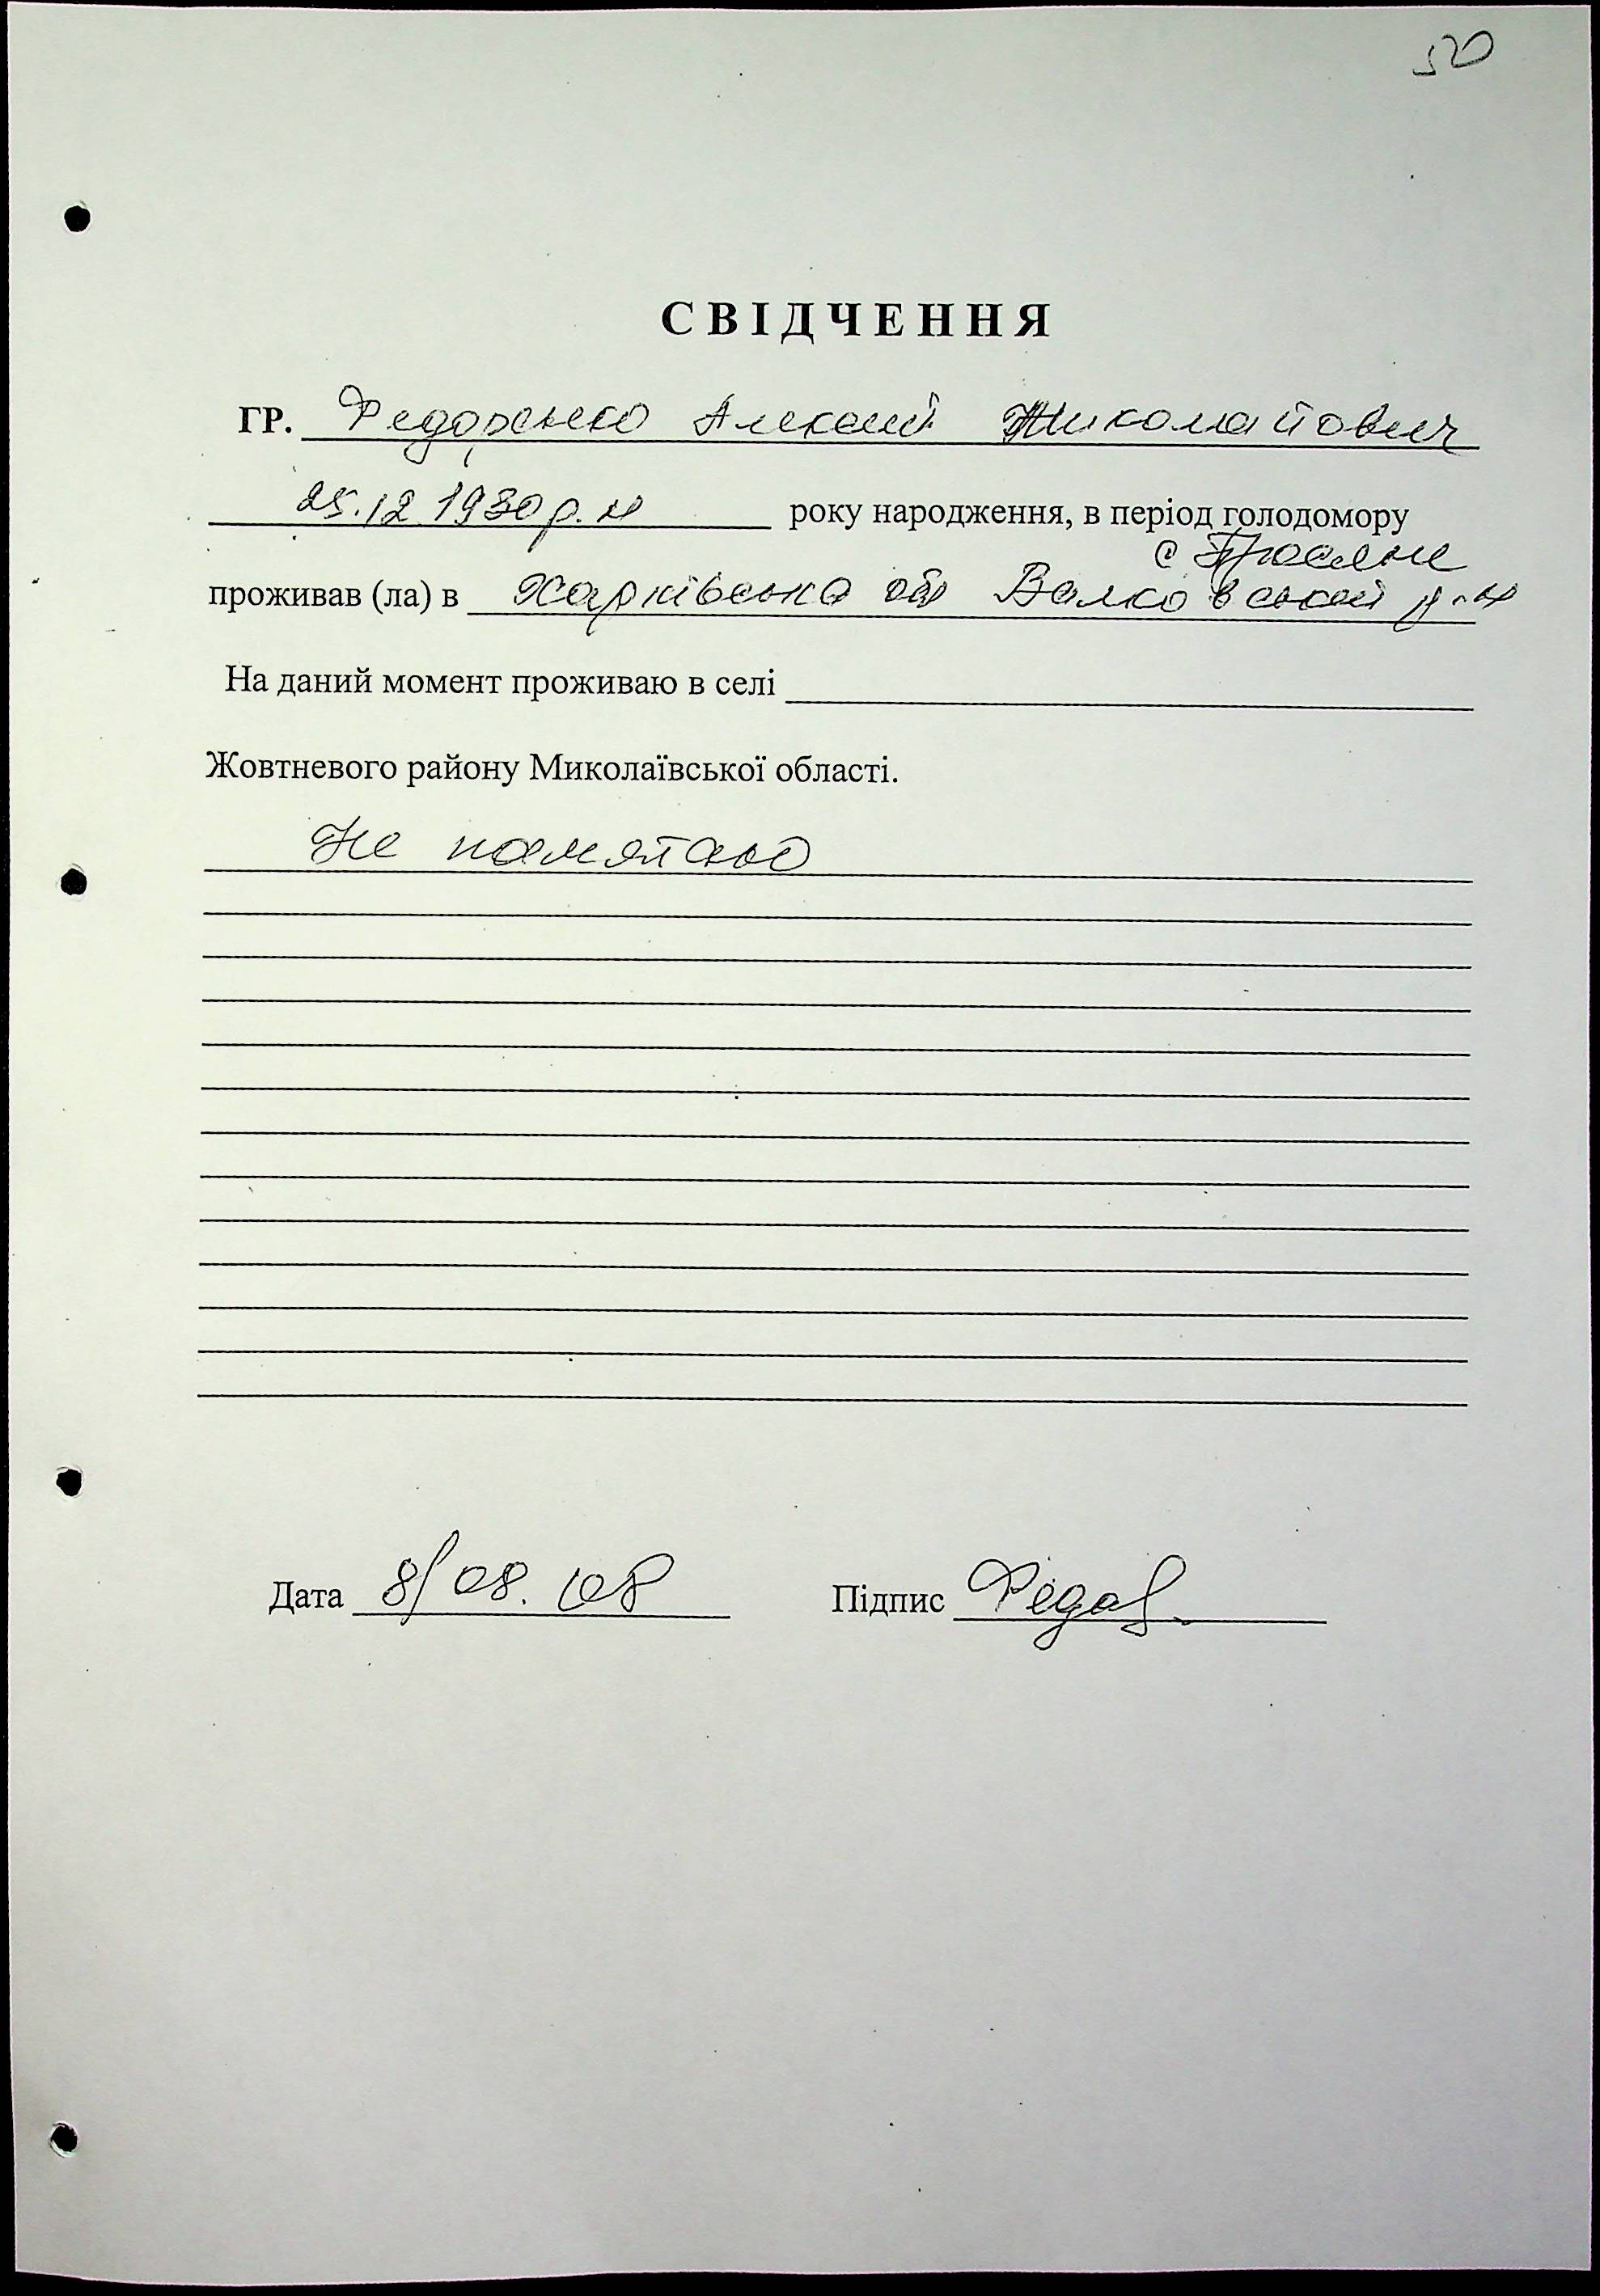 50
СВІДЧЕННЯ
ГР. Федоренко Алексей Николайович
25.12 1930 р. н року народження, в період голодомору
с
проживав (ла) в Харківська об Валковський р-н
На даний момент проживаю в селі
Жовтневого району Миколаївської області.
Не памятаю
Дата 8/08.08 Підпис Федор